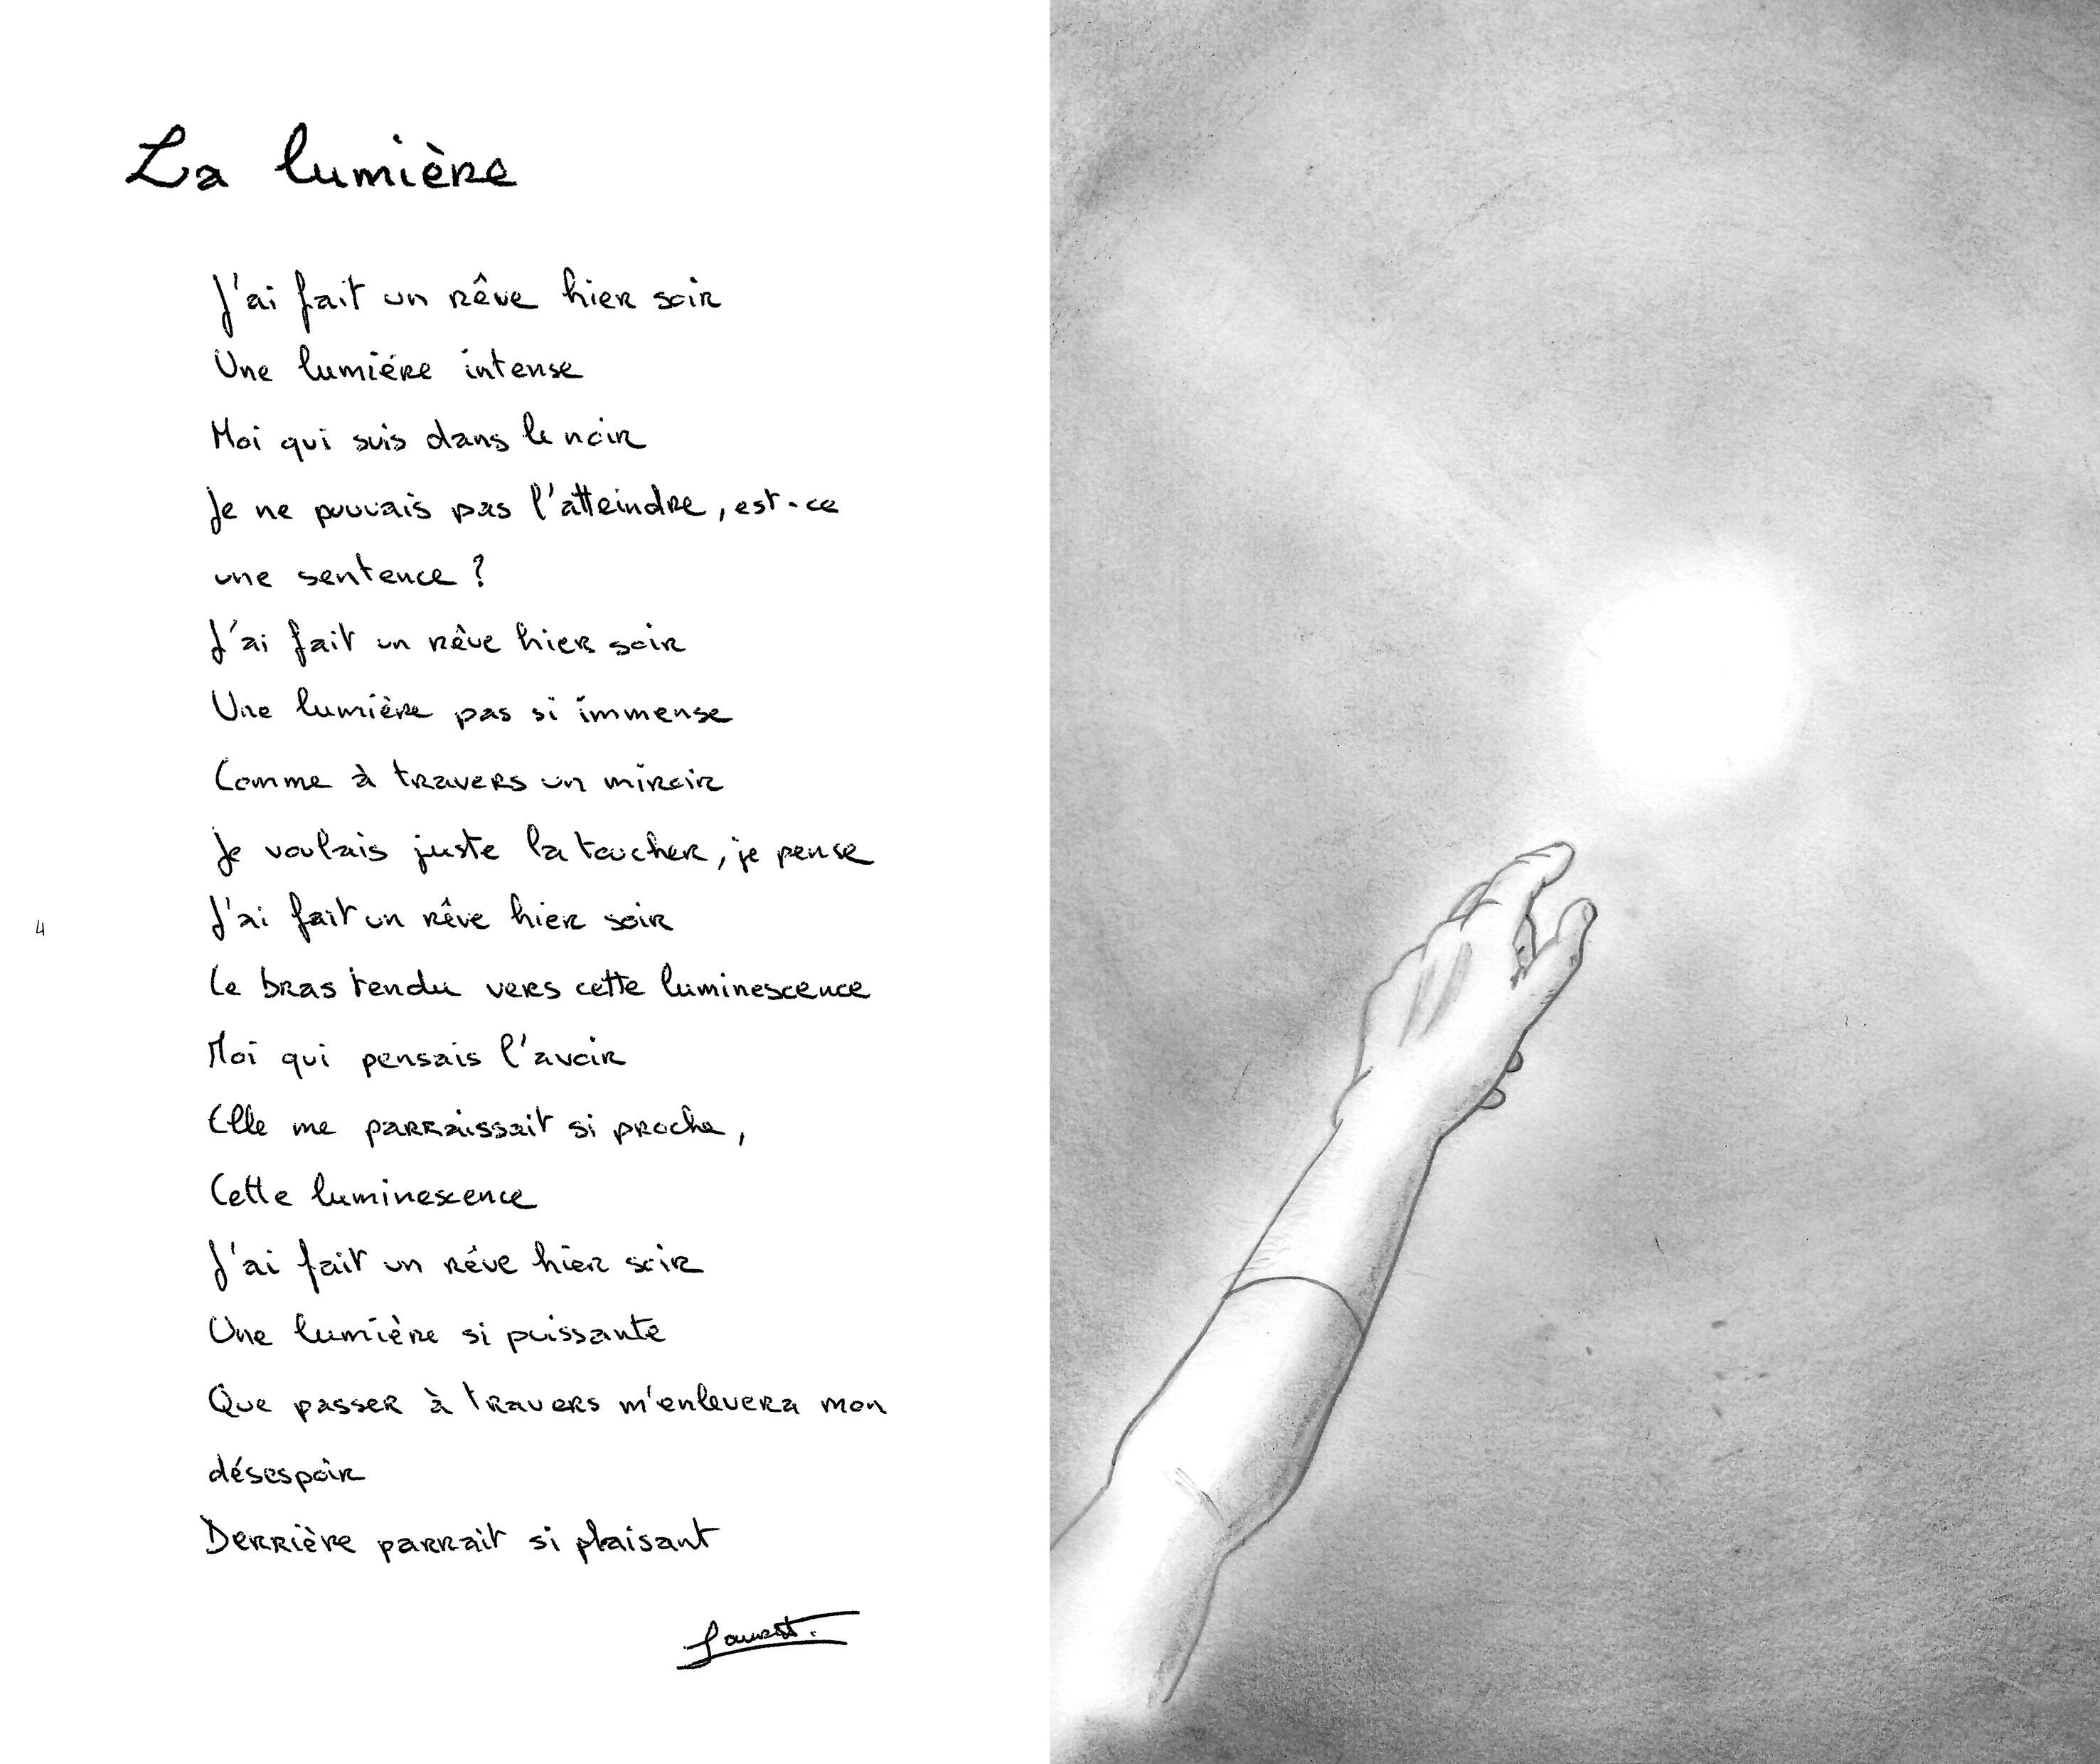 La lumière
J'ai fait un rêve hier soir
Une lumiére intense
Moi qui suis dans le noir
Je ne pouvais pas l'atteindre, est-ce
une sentence ?
J'ai fait un rêve hier soir
Une lumière pas si immense
Comme à travers un miroir
Je voulais juste la toucher, je pense
J'ai fait un rêve hier soir
Le bras tendu vers cette luminescence
Moi qui pensais l'avoir
Elle me parraissait si proche,
Cette luminescence
J'ai fait un rêve hier soir
Une lumière si puissante
Que passer à travers m'enlevera mon
désespoir
Derrière parrait si plaisant
4